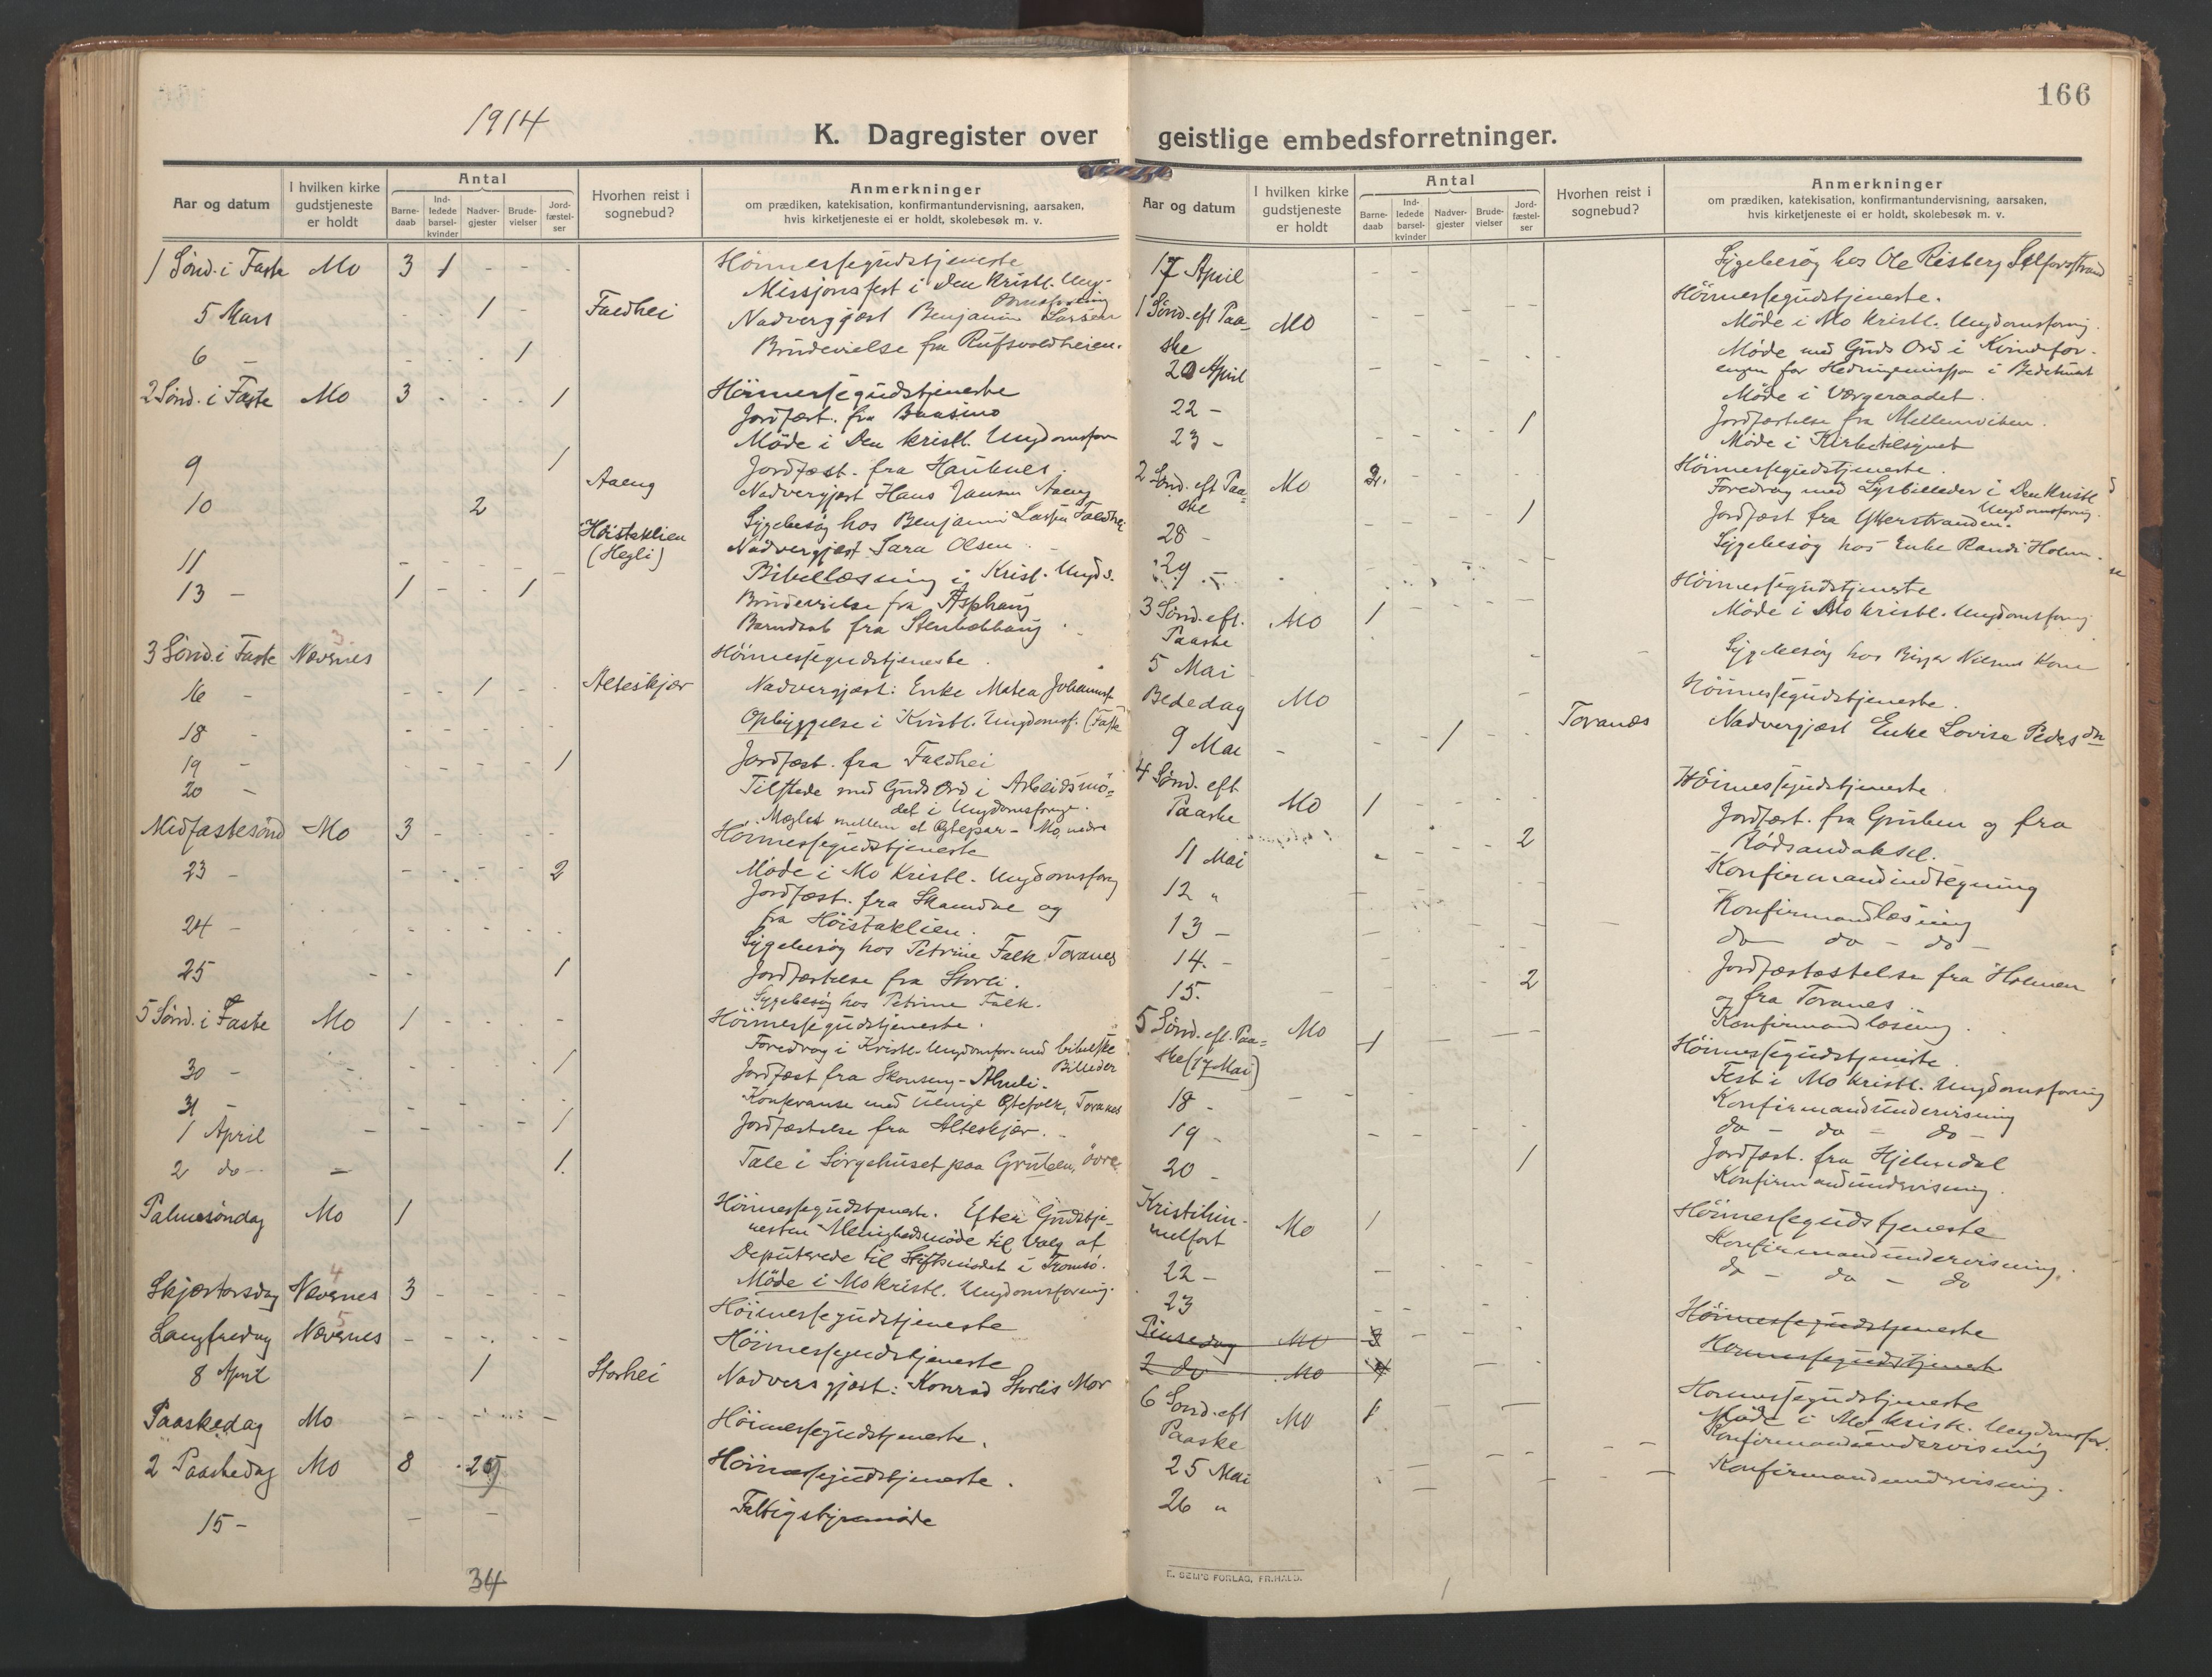 1914
K. Dagregister over
Aar og datum
I hvilken kirke gudstjeneste er holdt
Antal
Barne-daab
Ind-ledede barsel-kvinder
Nadver-gjester
Brude-vielser
Jord-fæstel-ser
Hvorhen reist i sognebud?
Anmerkninger
om prædiken, katekisation, konfirmantundervisning, aarsaken,
hvis kirketjeneste ei er holdt, skolebesøk m. v.
1 Sönd. i Faste Mo 3 1 - - - Höimessegudstjeneste
Missjonsfest i Den Kristl. Ung-
5 Mars 1 Faldhei Nadvergjæst Benjamin Larsen
6 - 1 Brudevielse fra Rufsvoldheien.
2 Sönd. i Faste Mo 3 1 Höimessegudstjeneste
Jordfæst. fra Baasmo
Möde i Den kristl. Ungdomsfor
9 1 Jordfæst. fra Hauknes.
10 2 Aaeng Nadvergjæst Hans Jansen Aaeng
Sygebesög hos Benjamin Larsen Faldhei
Höistaklien (Hegli) Nadvergjæst Sara Olsen.
11 Bibellæsning i Krist. Ungds.
13 - 1 1 Brudevielse fra Asphaug
Barndaab fra Stenbækhaug
3 Sönd. i Faste Nævernes 3. Höimessegudstjeneste
16 - 1 Alteskjær Nadvergjæst: Enke Matea Johannes.
18 - Opbyggelse i Kristl. Ungdomsf. (Faste
19 - 1 Jordfæst. fra Faldhei
20 - Tilstede med Guds Ord i Arbeidsmö-
det i Ungdomsforg.
Mæglet mellem et Ægtepar - Mo, nedre
Midfastesönd Mo 3 Höimessegudstjeneste
23 - 2 Möde i Mo Kristl. Ungdomsforg
Jordfæst. fra Skamdal og
fra Höistaklien.
24 - Sygebesög hos Petrine Falk Toranes
25 1 Jordfæstelse fra Storli.
Sygebesög hos Petrine Falk.
5 Sönd. i Faste Mo 1 Höimessegudstjeneste.
Foredrag i Kristl. Ungdomsfor. med bibelske
Billeder
30 - 1 Jordfæst fra Skonseng-
31 - Konferanse med uenige Ægtefolk, Toranes
1 April 1 Jordfæstelse fra Alteskjær.
2 do - 1. Tale i Sörgehuset paa Gruben, övre
Palmesöndag Mo 1 Höimessegudstjeneste. Efter Gudstje-
nesten Menighedsmöde til Valg af
Deputerede til Stiftsmödet i Tromsö.
Möde i Mo Kristl. Ungdomsforeng.
Skjærtorsdag Nævernes 4 3 Höimessegudstjeneste
Langfredag Nævernes 5 Höimessegudstjeneste
8 April 1 Storhei Nadversgjæst: Konrad Storlis Mor
Paaskedag Mo Höimessegudstjeneste.
2 Paaskedag Mo 8 Höimessegudstjeneste.
15 - Fattigstyremöde
34
166
geistlige embedsforretninger.
Aar og datum
I hvilken kirke gudstjeneste er holdt
Antal
Barne-daab
Ind-ledede barsel-kvinder
Nadver-gjester
Brude-vielser
Jord-fæstel-ser
Hvorhen reist i sognebud?
Anmerkninger
om prædiken, katekisation, konfirmantundervisning, aarsaken,
hvis kirketjeneste ei er holdt, skolebesøk m. v.
17 April Sygebesög hos Ole Risberg Selforsstrand
1 Sönd. eft Paa-ske Mo Höimessegudstjeneste.
Möde i Mo Kristl. Ungdomsforng.
20 April Möde med Guds Ord i Kvindefor-
engen for Hedningemissjon i Bedehuset
22 - Möde i Værgeraadet.
23 - 1 Jordfæstelse fra Mellemviken.
Möde i Kirketilsynet
2 Sönd. eft Paa-ske Mo 2. Höimessegudstjeneste.
Foredrag med Lysbilleder i Den Kristl
Ungdomsforng.
28 - 1 Jordfæst fra Ytterstranden.
29 - Sygebesög hos Enke Randi Holm.
3 Sönd. eft. Paaske Mo 1 Höimessegudstjeneste
Möde i Mo kristl. Ungdomsforng
5 Mai Sygebesög hos Birger Nilsens Kone
Bededag Mo Höimessegudstjeneste.
9 Mai 1 Toranæs Nadvergjæst Enke Lovise Pedersdtr
4 Sönd. eft Paaske Mo 1 Höimessegudstjeneste
11 Mai 2 Jordfæst. fra Gruben og fra
Rödsandaksel.
Konfirmandindtegning
12 " Konfirmandlæsning
13 - do - do - do -
14. -
15. 2 Jordfæstæstelse fra Holmen
og fra Toranes.
Konfirmandlæsning.
5 Sönd. eft. Paa-ske (17 Mai) Mo 1 Höimessegudstjeneste.
Fest i Mo Kristl. Ungdomsforening
18 - Konfirmandundervisning
19 - do - do - do -
20 - 1 Jordfæst. fra Hjelmdal
Konfirmandundervisning.
Kristihim-melfart Mo 1 Höimessegudstjeneste
22 - Konfirmandundervisning.
23 do - do - do
Pinsedag Mo 3 Höimessegudstjeneste
2 do Mo 4 Höimessegudstjeneste
6 Sönd. eft Paaske Mo 1 Höimessegudstjeneste
Möde i Mo Krist. Ungdomsfor.
25 Mai Konfirmandundervisning
26 " Konfirmandundervisning.
E. SEM'S FORLAG, FR.HALD.